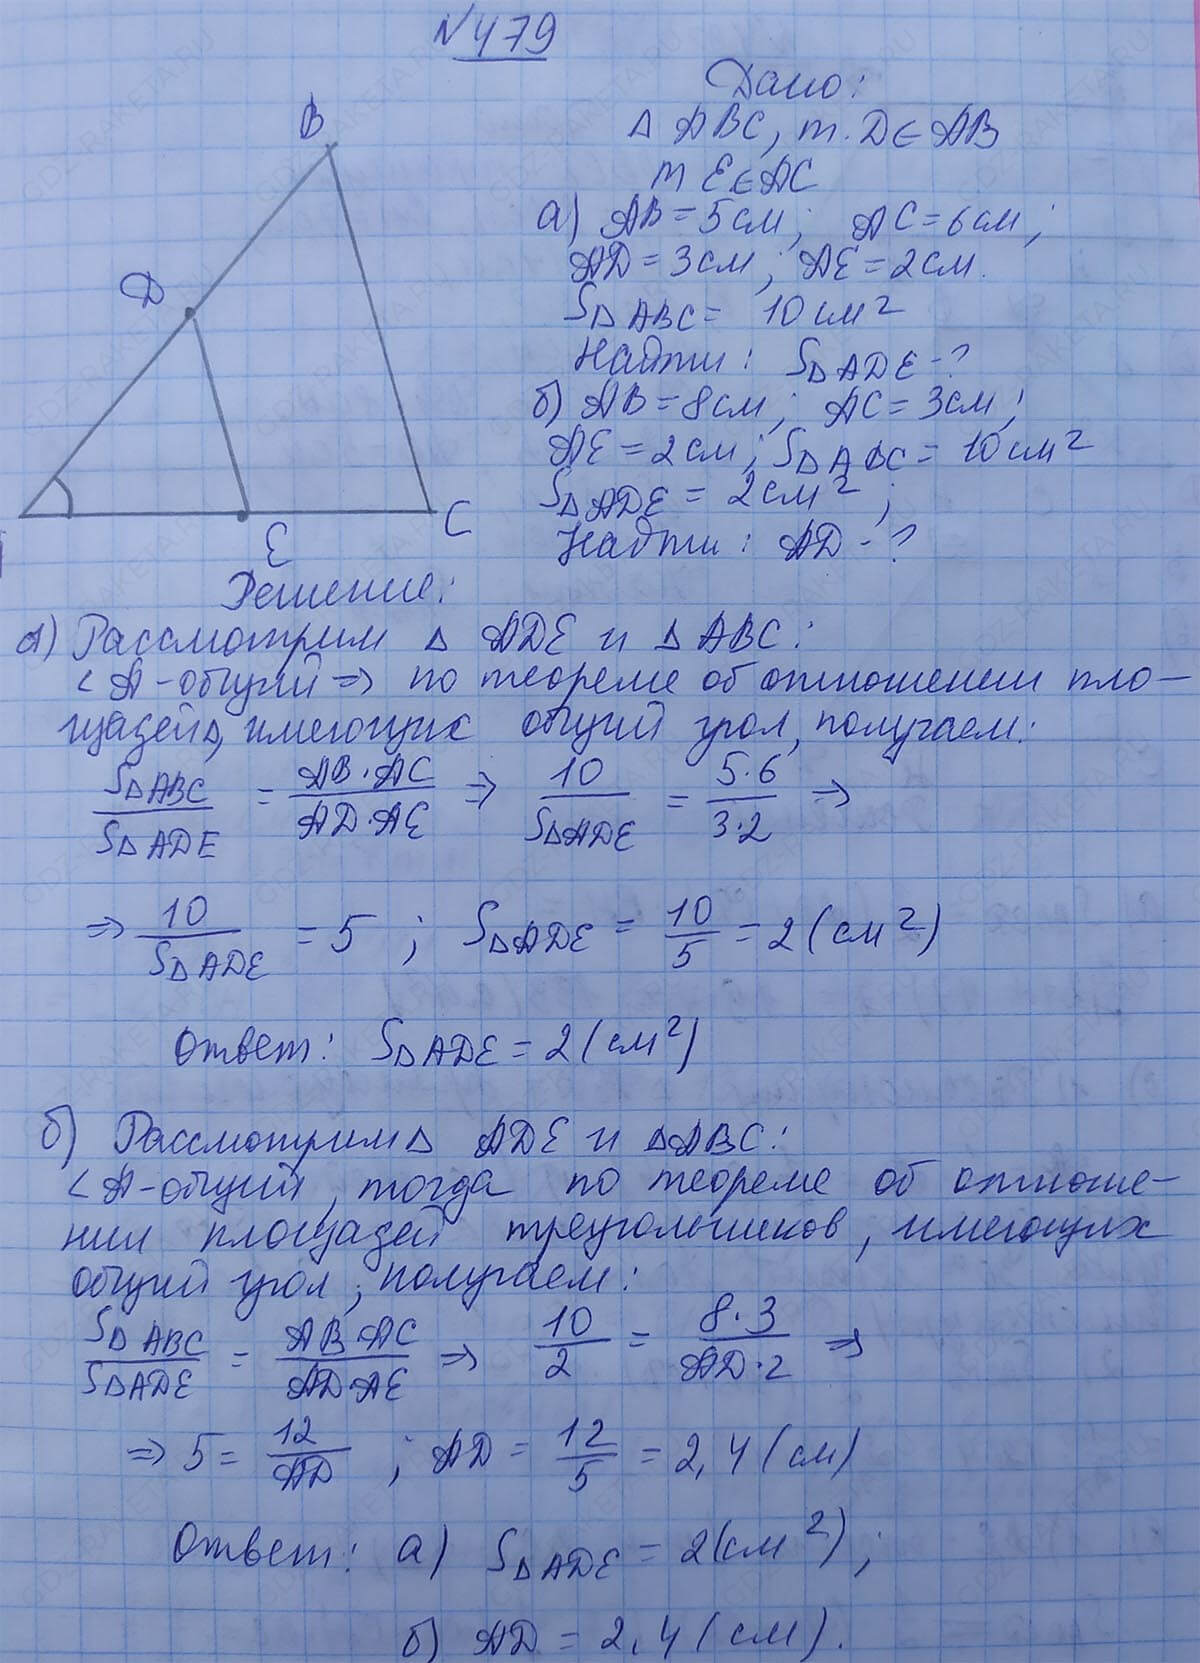 №479
Дано:
Δ ABC, т. D ∈ AB
т E ∈ AC
а) AB = 5 см; AC = 6 см;
AD = 3 см; AE = 2 см.
SΔABC = 10 см²
Найти: SΔADE - ?
б) AB = 8 см; AC = 3 см;
AE = 2 см; SΔABC = 10 см²
SΔADE = 2 см²;
Найти: AD - ?
B
D
E
C
Решение:
а) Рассмотрим Δ ADE и Δ ABC:
∠A - общий ⇒ по теореме об отношении пло-
щадей Δ, имеющих общий угол, получаем:
SΔABC/SΔADE = AB·AC/AD·AE ⇒ 10/SΔADE = 5·6/3·2 ⇒
⇒ 10/SΔADE = 5; SΔADE = 10/5 = 2 (см²)
Ответ: SΔADE = 2 (см²)
б) Рассмотрим Δ ADE и ΔABC:
∠A - общий, тогда по теореме об отноше-
нии площадей треугольников, имеющих
общий угол, получаем:
SΔABC/SΔADE = AB·AC/AD·AE ⇒ 10/2 = 8·3/AD·2 ⇒
⇒ 5 = 12/AD; AD = 12/5 = 2,4 (см)
Ответ: а) SΔADE = 2 (см²);
б) AD = 2,4 (см).